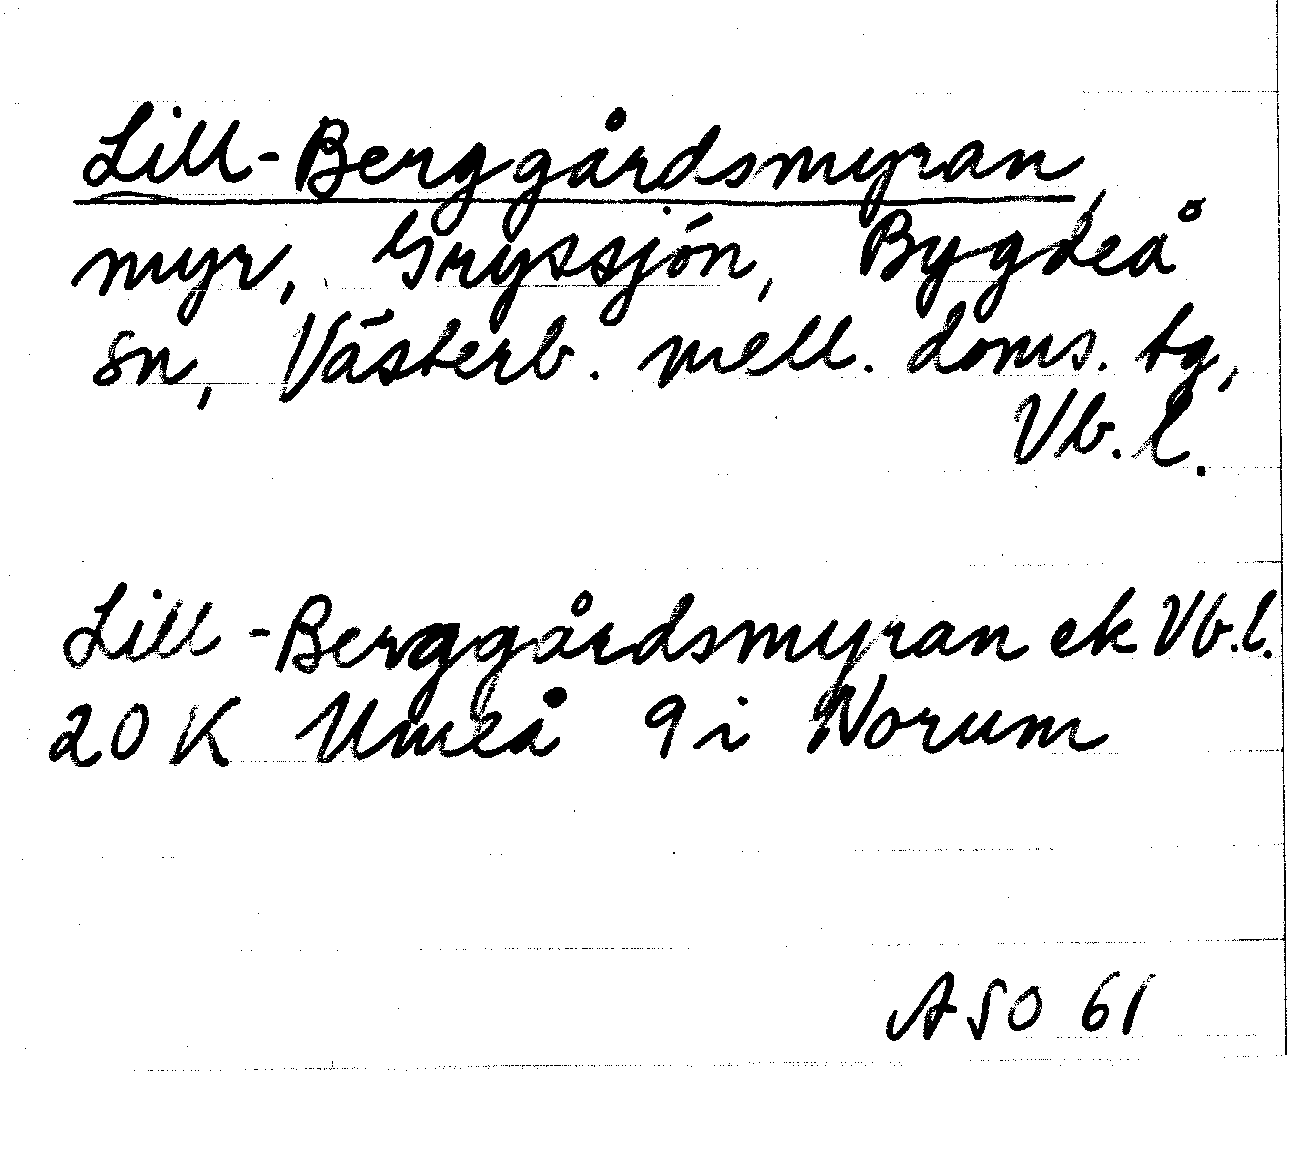 Lill-Berggårdsmyran,
myr, Gryssjön, Bygdeå
sn, Västerb. mell. doms. tg,
Vb. l.
Lill-Berggårdsmyran ek Vb. l.
20 K Umeå 9 i Norum
ASO 61